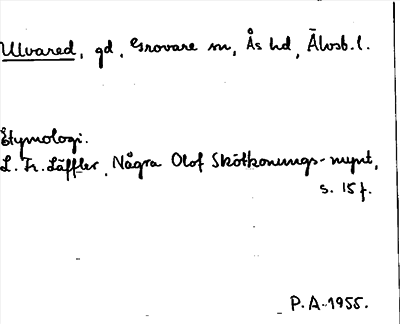 Ulvared, gd, Grovare sn, Ås hd, Älvsb. l.
Etymologi.
L. Fr. Läffler, Några Olof Skötkonungs-mynt,
s. 15 f.
P. A. 1955.